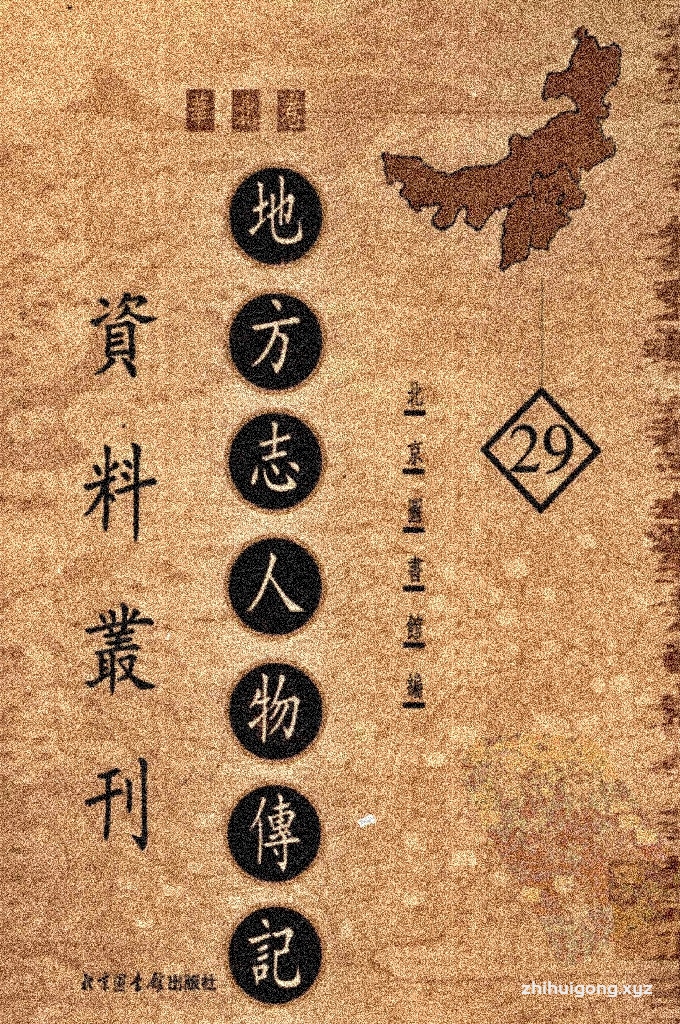 華北卷
29
北京圖書館編
地方志人物傳記
資料叢刊
北京圖書館出版社
zhihuigong.xyz